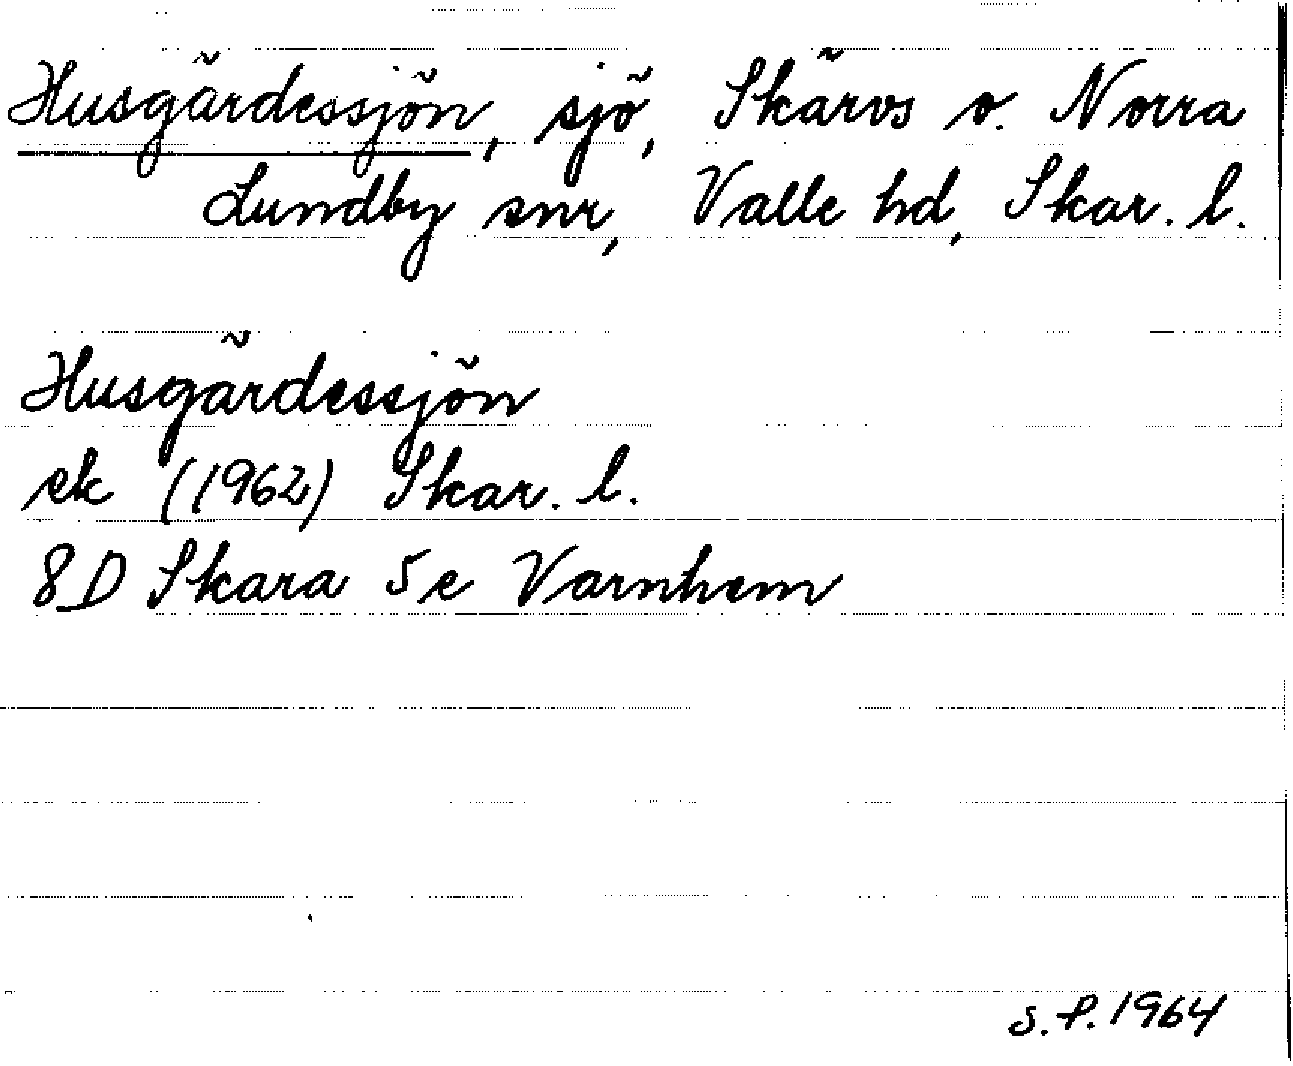 Husgärdessjön, sjö, Skärvs o. Norra
Lundby snr, Valle hd, Skar. l.
Husgärdessjön
ek (1962) Skar. l.
8D Skara 5e Varnhem
S.F. 1964